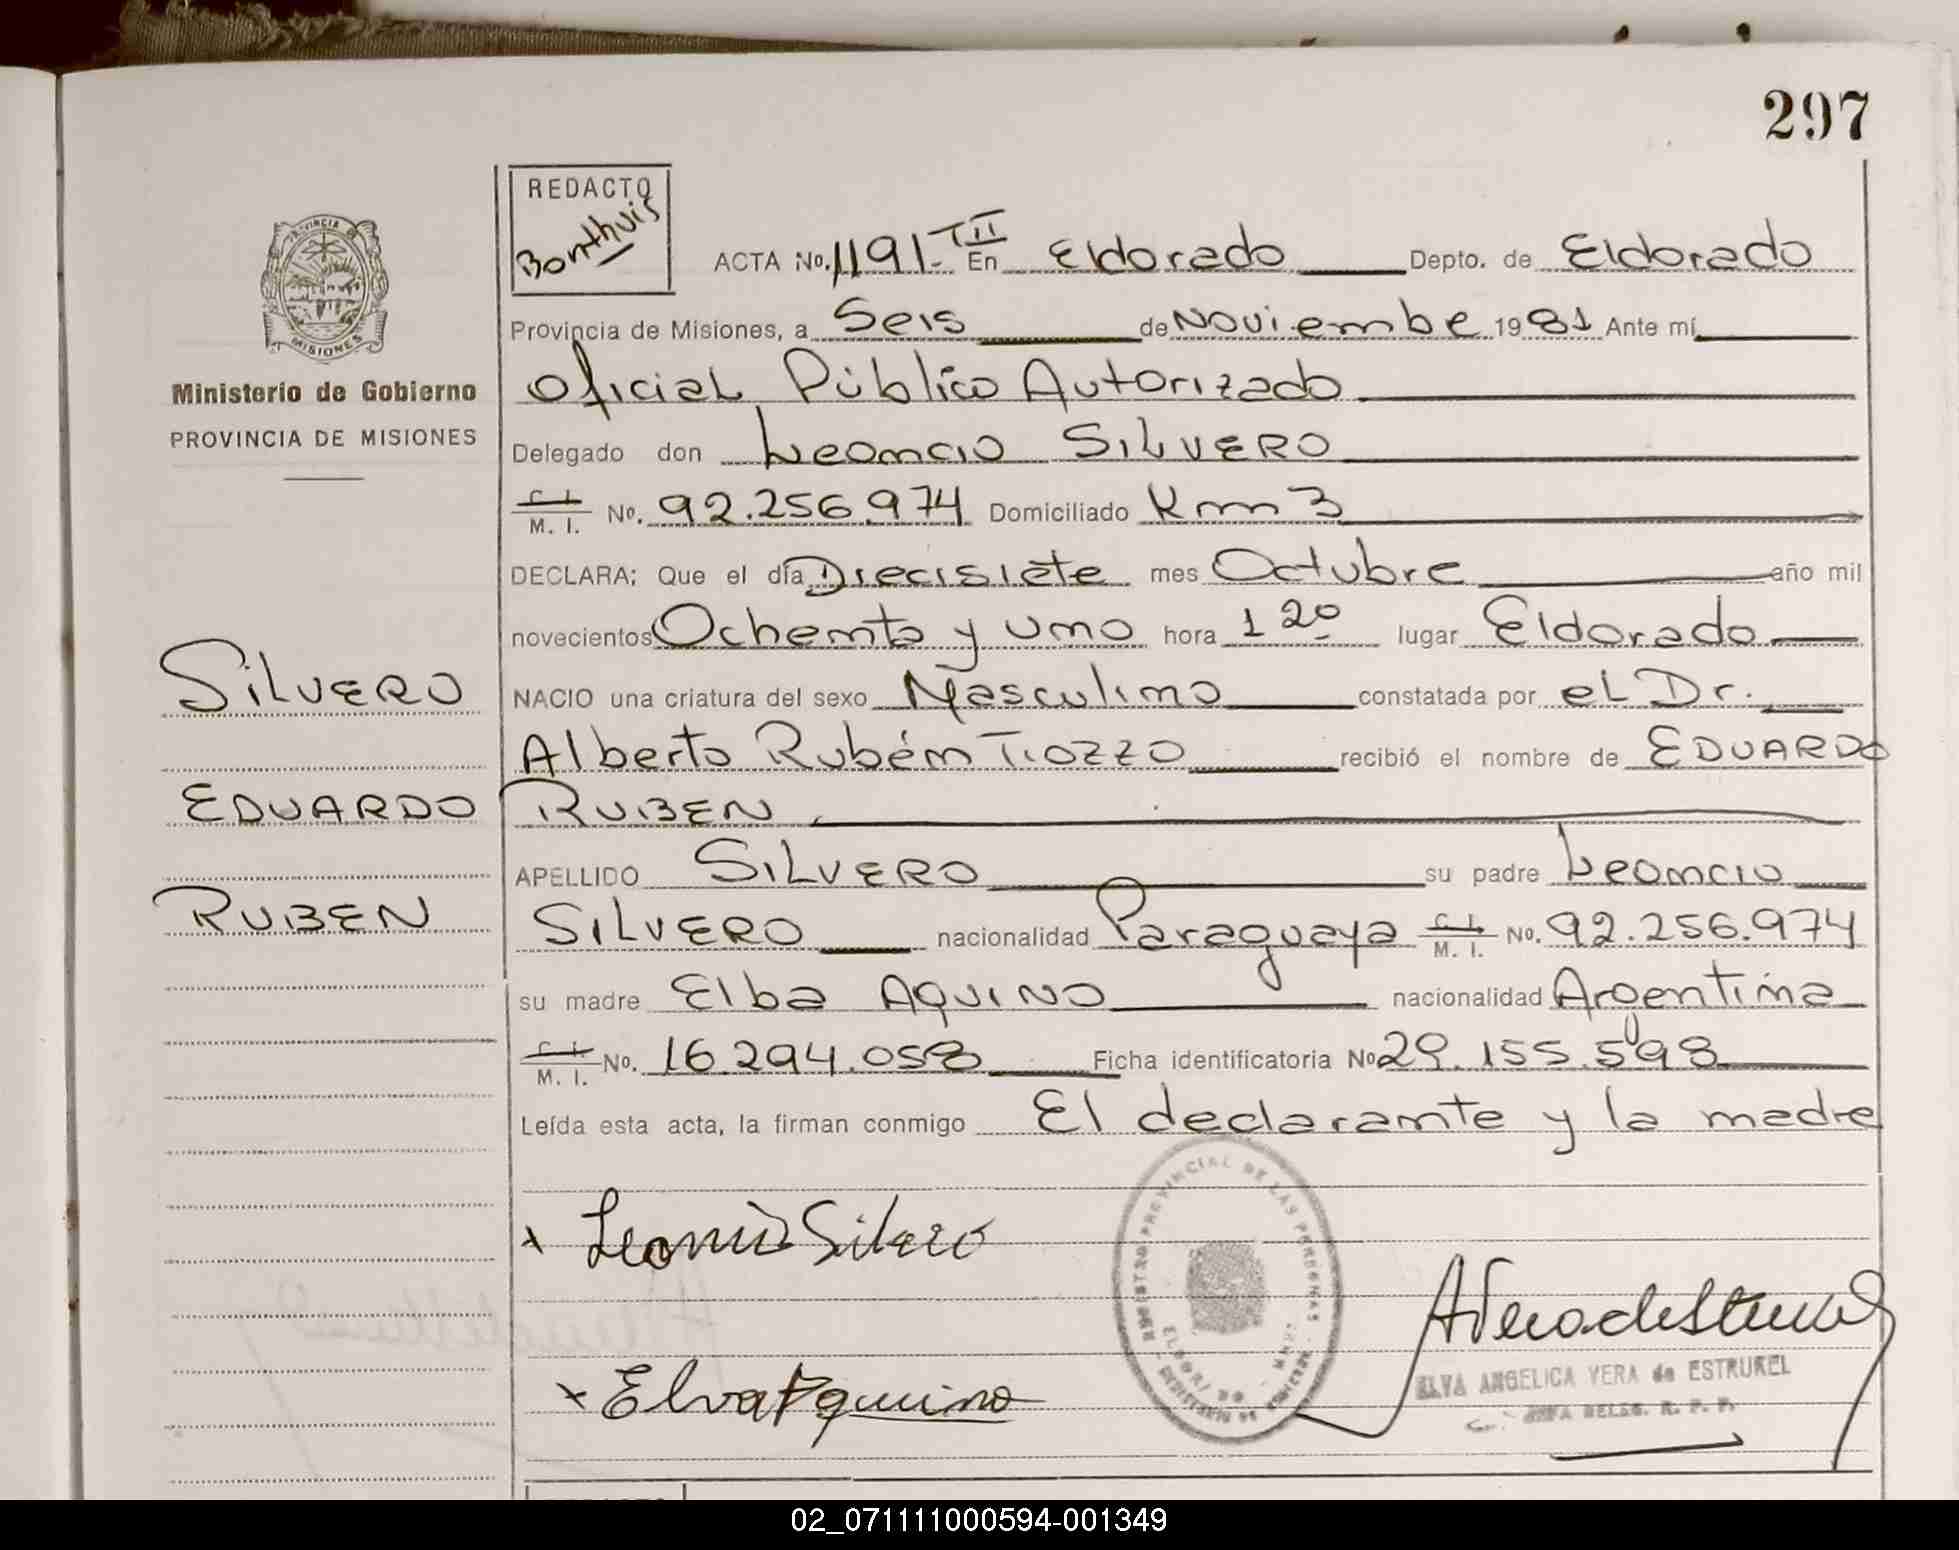 297
REDACTO
Bonthuis
PROVINCIA DE
MISIONES
Ministerio de Gobierno
PROVINCIA DE MISIONES
ACTA No. 1191-TII En Eldorado Depto. de Eldorado
Provincia de Misiones, a Seis de Noviembre 1981 Ante mí
Oficial Público Autorizado
Delegado don Leoncio SILVERO
C. I. M. I. No. 92.256.974 Domiciliado Km 3
DECLARA: Que el día Diecisiete mes Octubre año mil
novecientos Ochenta y uno hora 1 20 lugar Eldorado
NACIO una criatura del sexo Masculino constatada por el Dr.
Alberto Rubén Tiozzo recibió el nombre de EDUARDO
RUBEN
APELLIDO SILVERO su padre Leoncio
SILVERO nacionalidad Paraguaya C. I. M. I. No. 92.256.974
su madre Elba AQUINO nacionalidad Argentina
C. I. M. I. No. 16.294.058 Ficha identificatoria No 29.155.598
Leída esta acta, la firman conmigo El declarante y la madre
SILVERO
EDUARDO
RUBEN
x Leoncio Silvero
x Elva Aquino
REGISTRO PROVINCIAL DE LAS PERSONAS
ELDORADO
ELVA ANGELICA VERA de ESTRUKEL
JEFA DELEG. R. P. P.
02_071111000594-001349